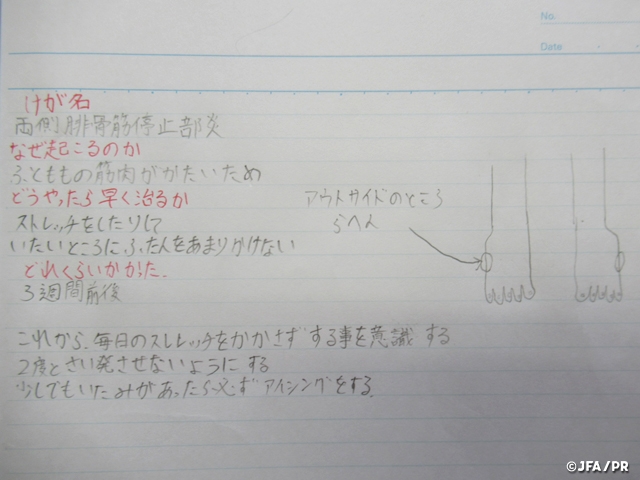 No
Date
けが名
両側腓骨筋停止部炎
なぜ起こるのか
ふとももの筋肉がかたいため
どうやったら早く治るか
ストレッチをしたりして
いたいところにふたんをあまりかけない
どれくらいかかった.
3週間前後
アウトサイドのところ
らへん
これから、毎日のストレッチをかかさずする事を意識する
2度とさい発させないようにする
少しでもいたみがあったら必ずアイシングをする.
©JFA/PR